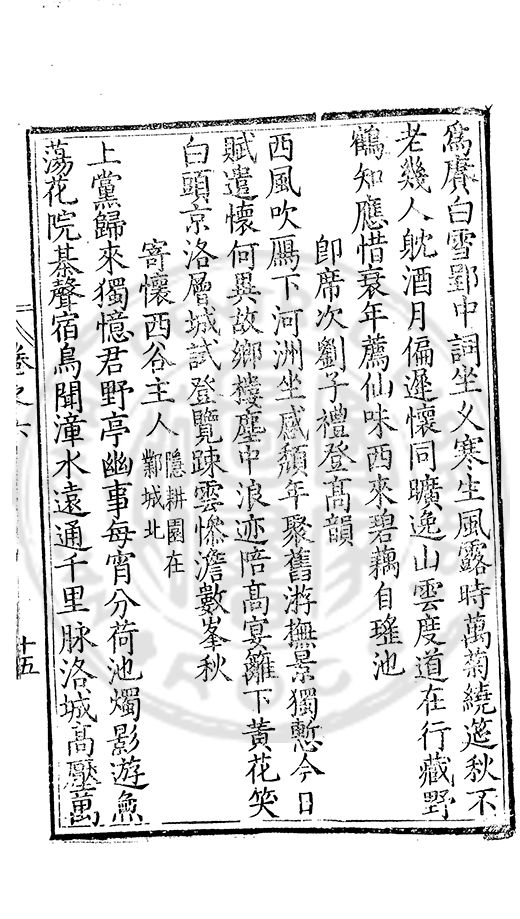 為賡白雪郢中詞坐乆寒生風露時萬菊繞筵秋不
老幾人躭酒月偏遲懷同曠逸山雲度道在行藏野
鶴知應惜衰年薦仙味西來碧藕自瑤池
即席次劉子禮登高韻
西風吹鴈下河洲坐感頹年聚舊游撫景獨慙今日
賦遣懷何異故鄉樓塵中浪迹陪高宴籬下黃花笑
白頭京洛層城試登覽疎雲慘澹數峯秋
寄懷西谷主人隱耕園在鄴城北
上黨歸來獨憶君野亭幽事每宵分荷池燭影游魚
蕩花院棊聲宿鳥聞漳水遠通千里脉洛城高壓萬
卷之六
十五